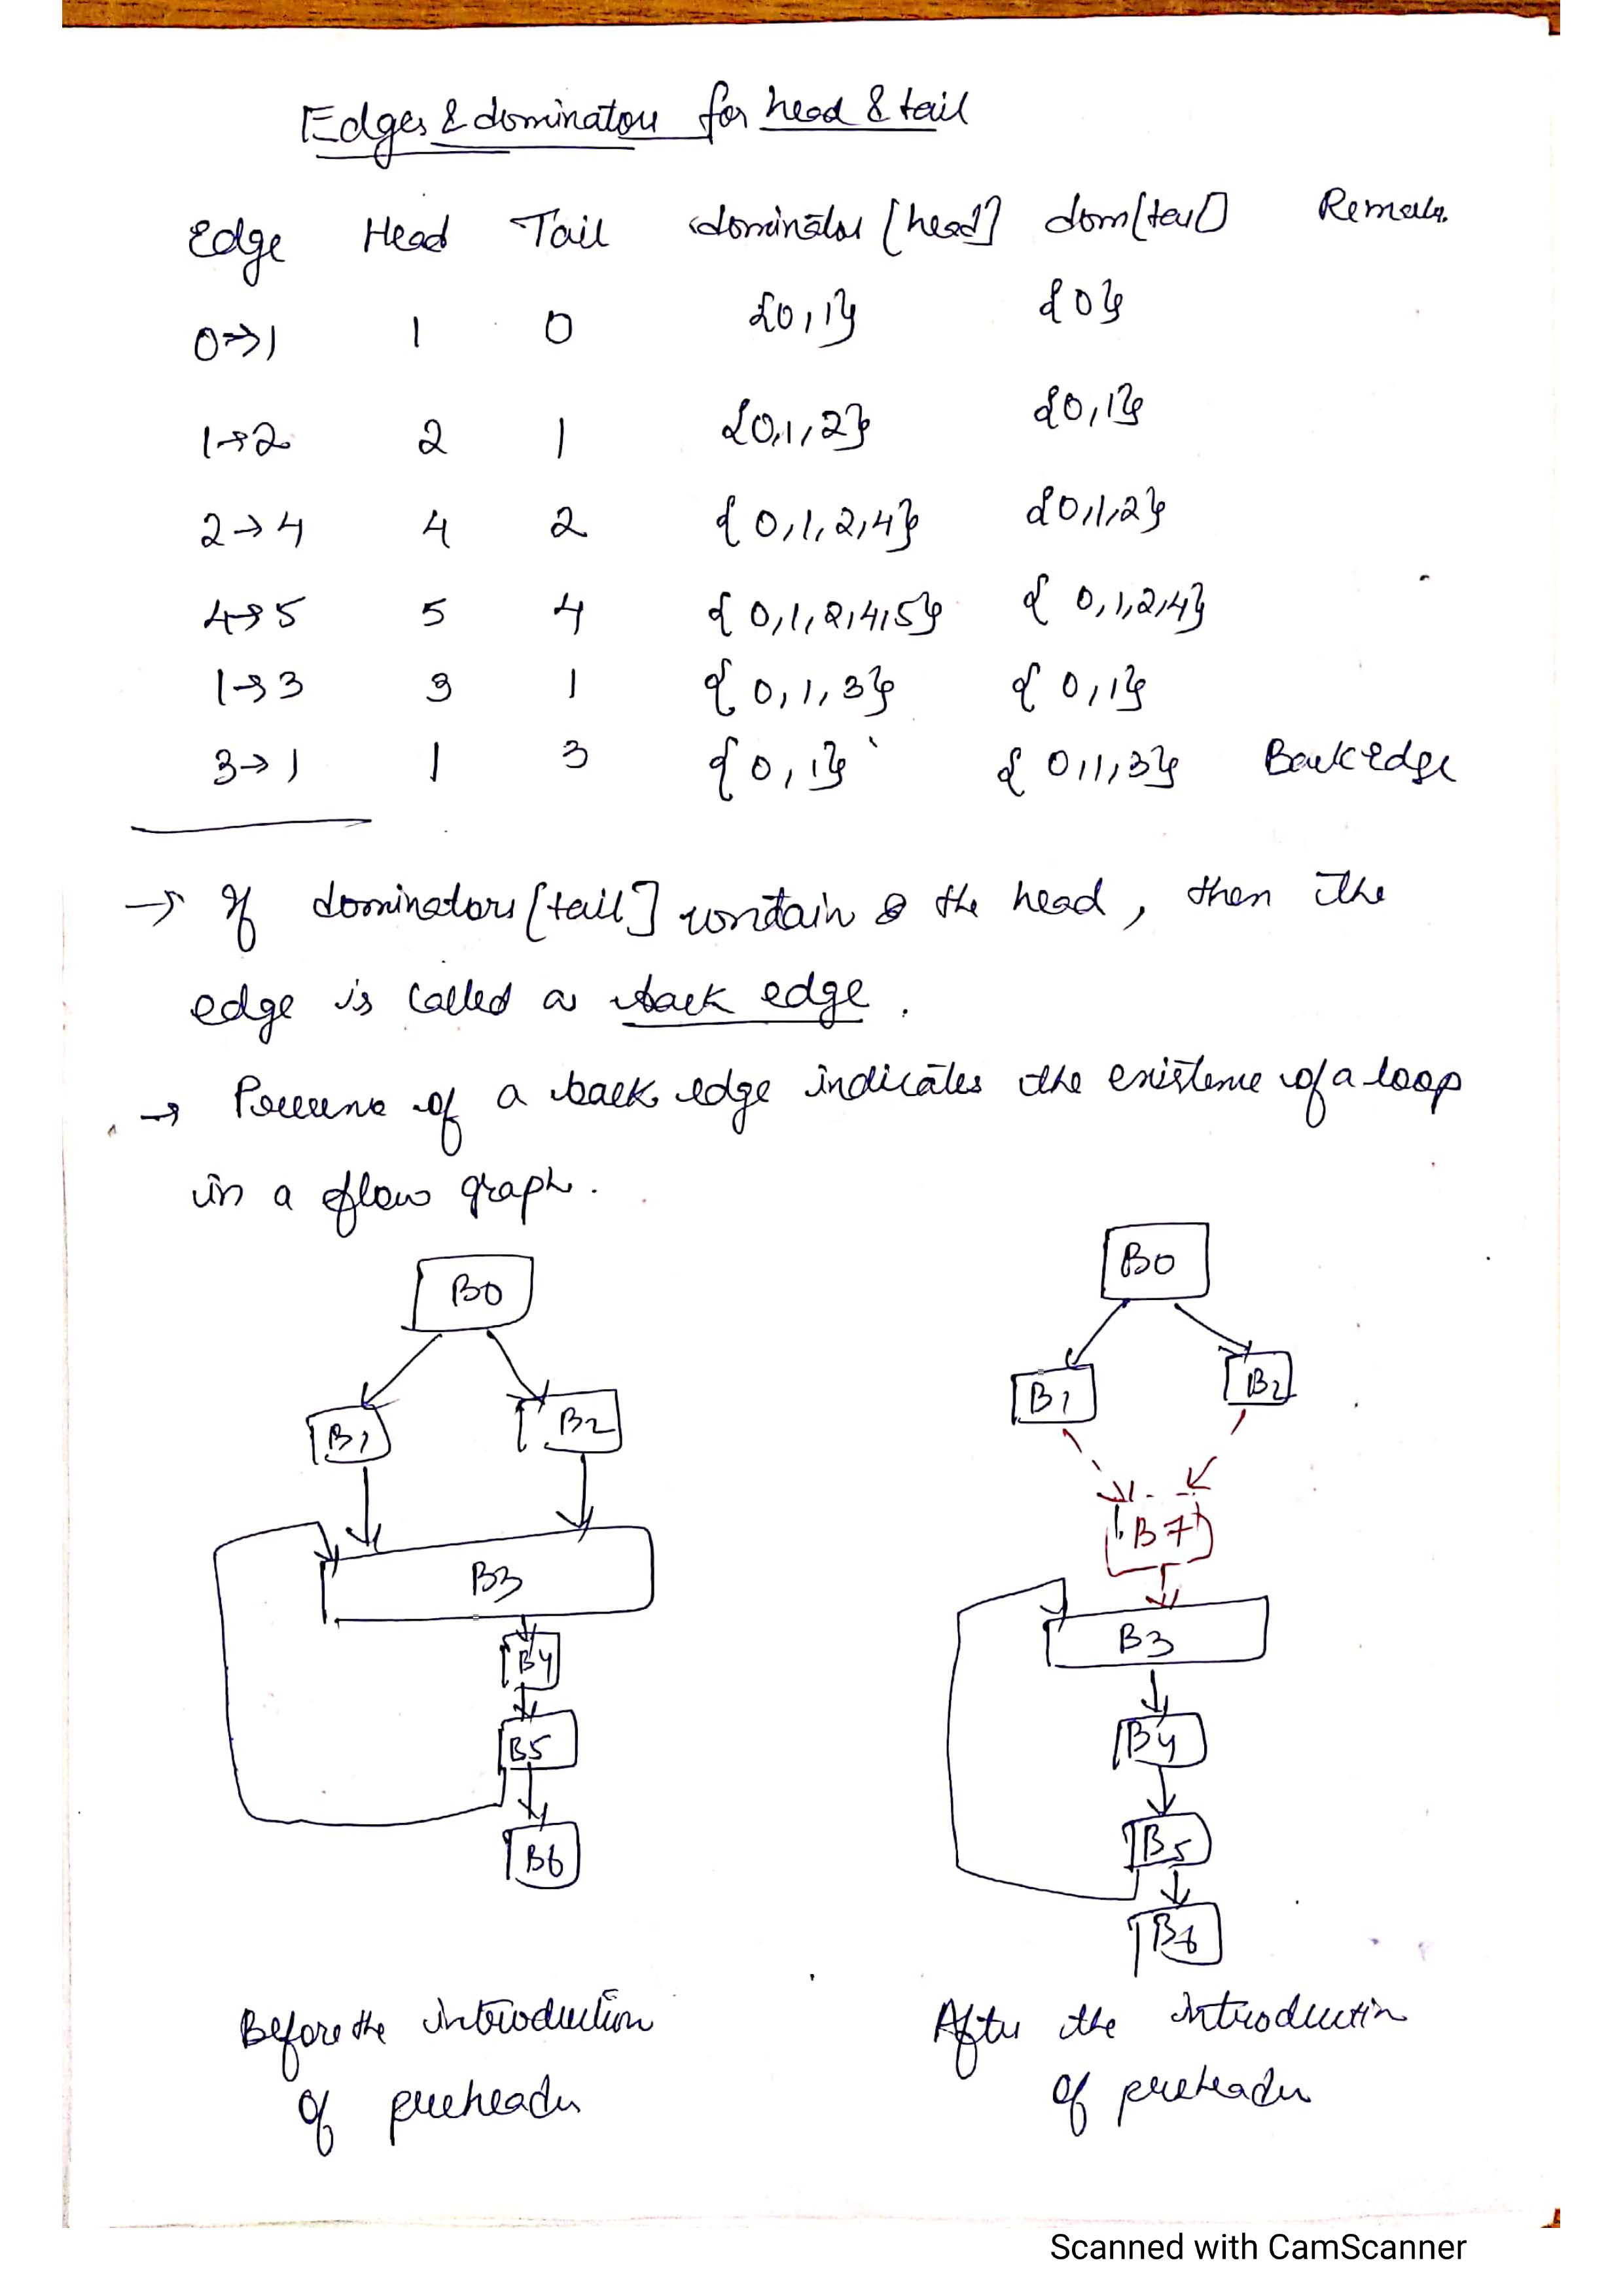 Edges & dominators for head & tail
Edge Head Tail dominators [head] dom[tail] Remarks
0→1 1 0 {0,1} {0}
1→2 2 1 {0,1,2} {0,1}
2→4 4 2 {0,1,2,4} {0,1,2}
4→5 5 4 {0,1,2,4,5} {0,1,2,4}
1→3 3 1 {0,1,3} {0,1}
3→1 1 3 {0,1} {0,1,3} Back edge
→ If dominators [tail] contain the head, then the
edge is called a back edge.
→ Presence of a back edge indicates the existence of a loop
in a flow graph.
B0
B1 B2
B3
B4
B5
B6
Before the introduction
of preheader
B0
B1 B2
B7
B3
B4
B5
B6
After the introduction
of preheader
Scanned with CamScanner